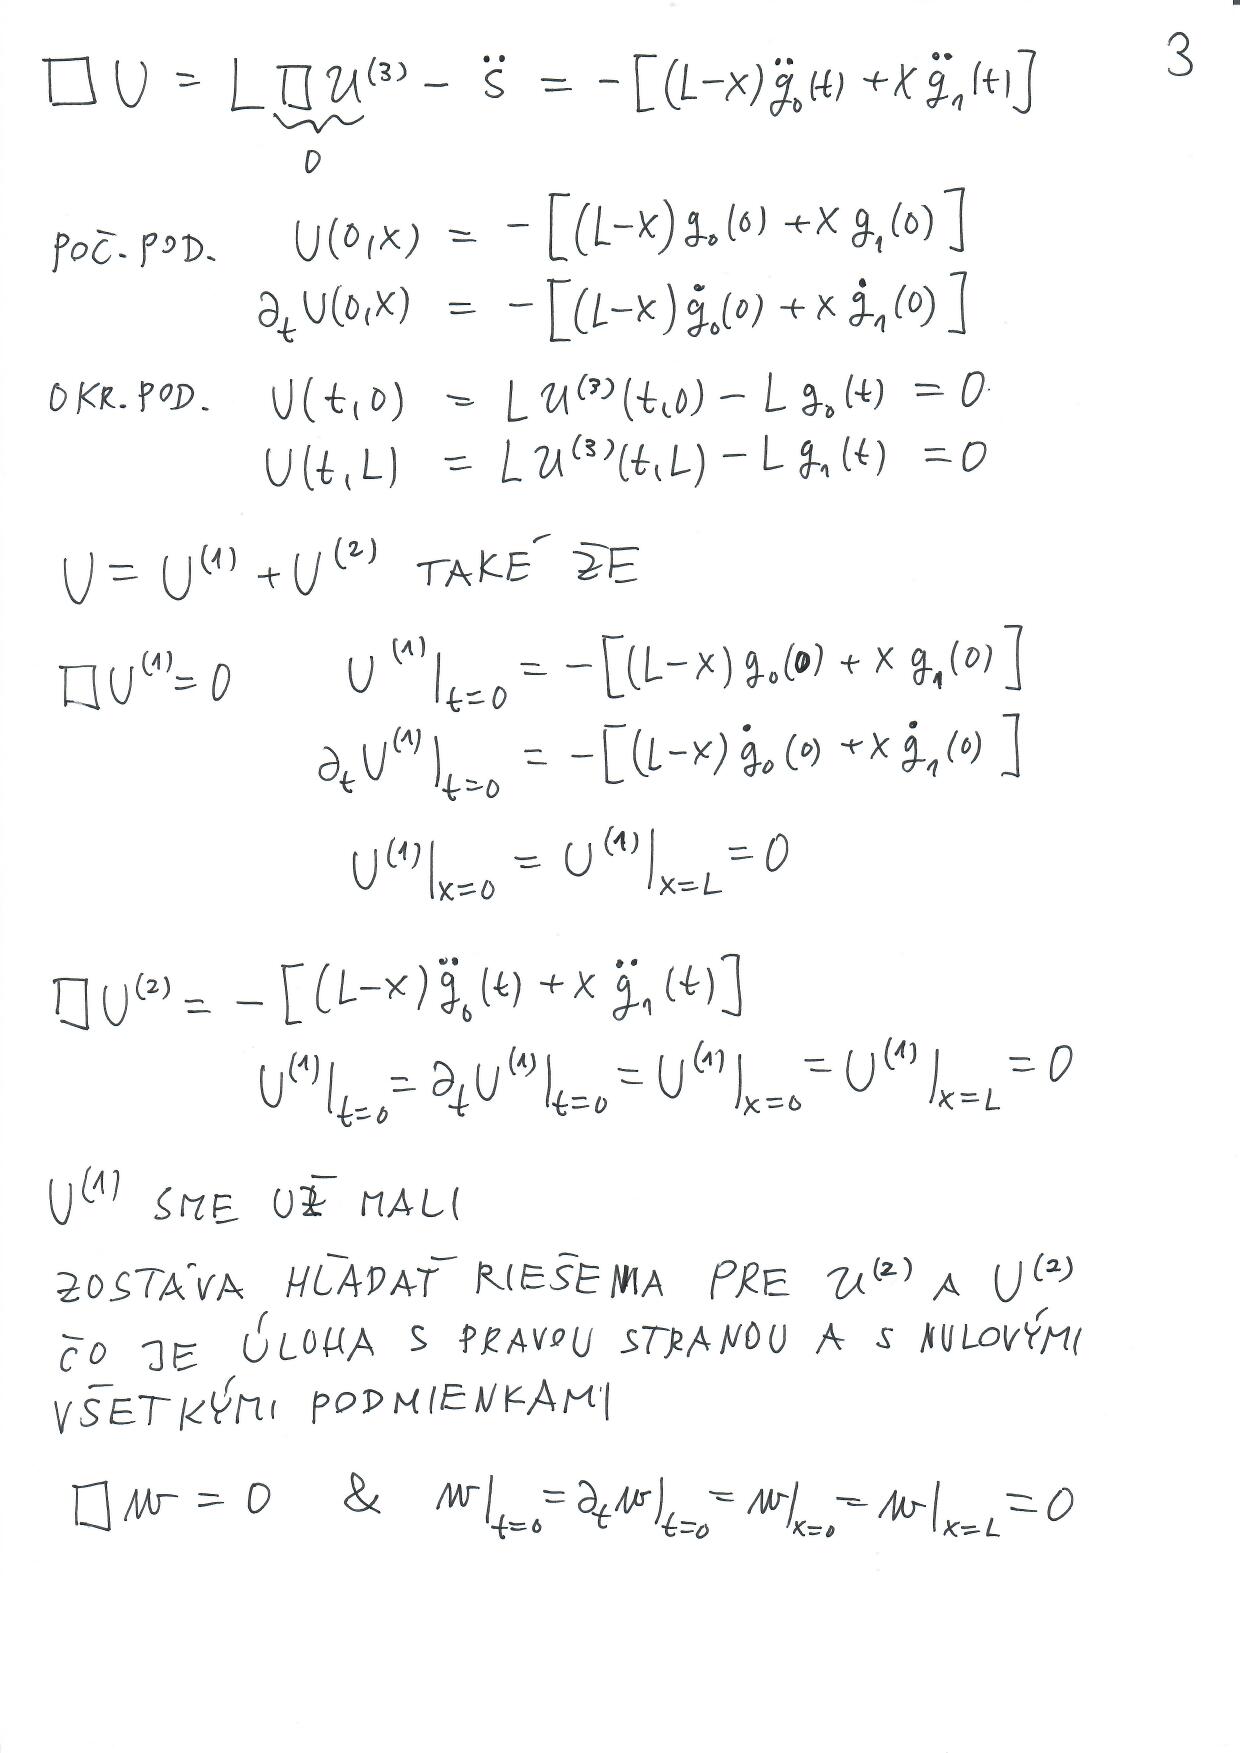 3
□U = L□u⁽³⁾ − s̈ = −[(L−x)g̈₀(t) + x g̈₁(t)]
0
POČ. POD. U(0,x) = −[(L−x)g₀(0) + x g₁(0)]
∂ₜU(0,x) = −[(L−x)ġ₀(0) + x ġ₁(0)]
OKR. POD. U(t,0) = L u⁽³⁾(t,0) − L g₀(t) = 0
U(t,L) = L u⁽³⁾(t,L) − L g₁(t) = 0
U = U⁽¹⁾ + U⁽²⁾ TAKÉ ŽE
□U⁽¹⁾ = 0 U⁽¹⁾|ₜ₌₀ = −[(L−x)g₀(0) + x g₁(0)]
∂ₜU⁽¹⁾|ₜ₌₀ = −[(L−x)ġ₀(0) + x ġ₁(0)]
U⁽¹⁾|ₓ₌₀ = U⁽¹⁾|_{x=L} = 0
□U⁽²⁾ = −[(L−x)g̈₀(t) + x g̈₁(t)]
U⁽¹⁾|ₜ₌₀ = ∂ₜU⁽¹⁾|ₜ₌₀ = U⁽¹⁾|ₓ₌₀ = U⁽¹⁾|_{x=L} = 0
U⁽¹⁾ SME UŽ MALI
ZOSTÁVA HĽADAŤ RIEŠENIA PRE u⁽²⁾ A U⁽²⁾
ČO JE ÚLOHA S PRAVOU STRANOU A S NULOVÝMI
VŠETKÝMI PODMIENKAMI
□w = 0 & w|ₜ₌₀ = ∂ₜw|ₜ₌₀ = w|ₓ₌₀ = w|_{x=L} = 0